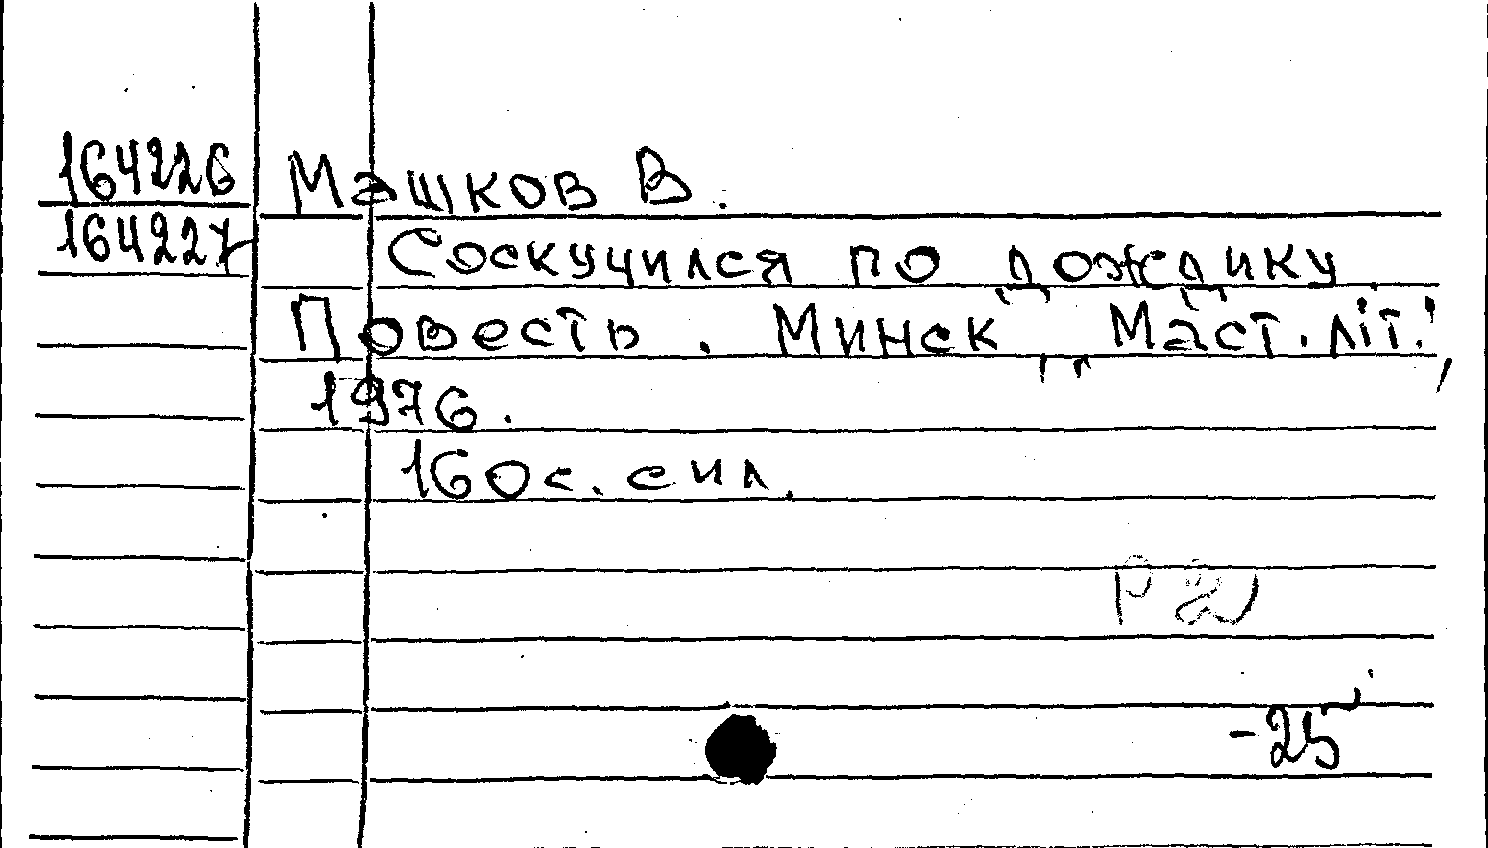 164226 Машков В.
164227 Соскучился по дождику.
Повесть. Минск, "Маст. літ.",
1976.
160с. с ил.
Р2
-25